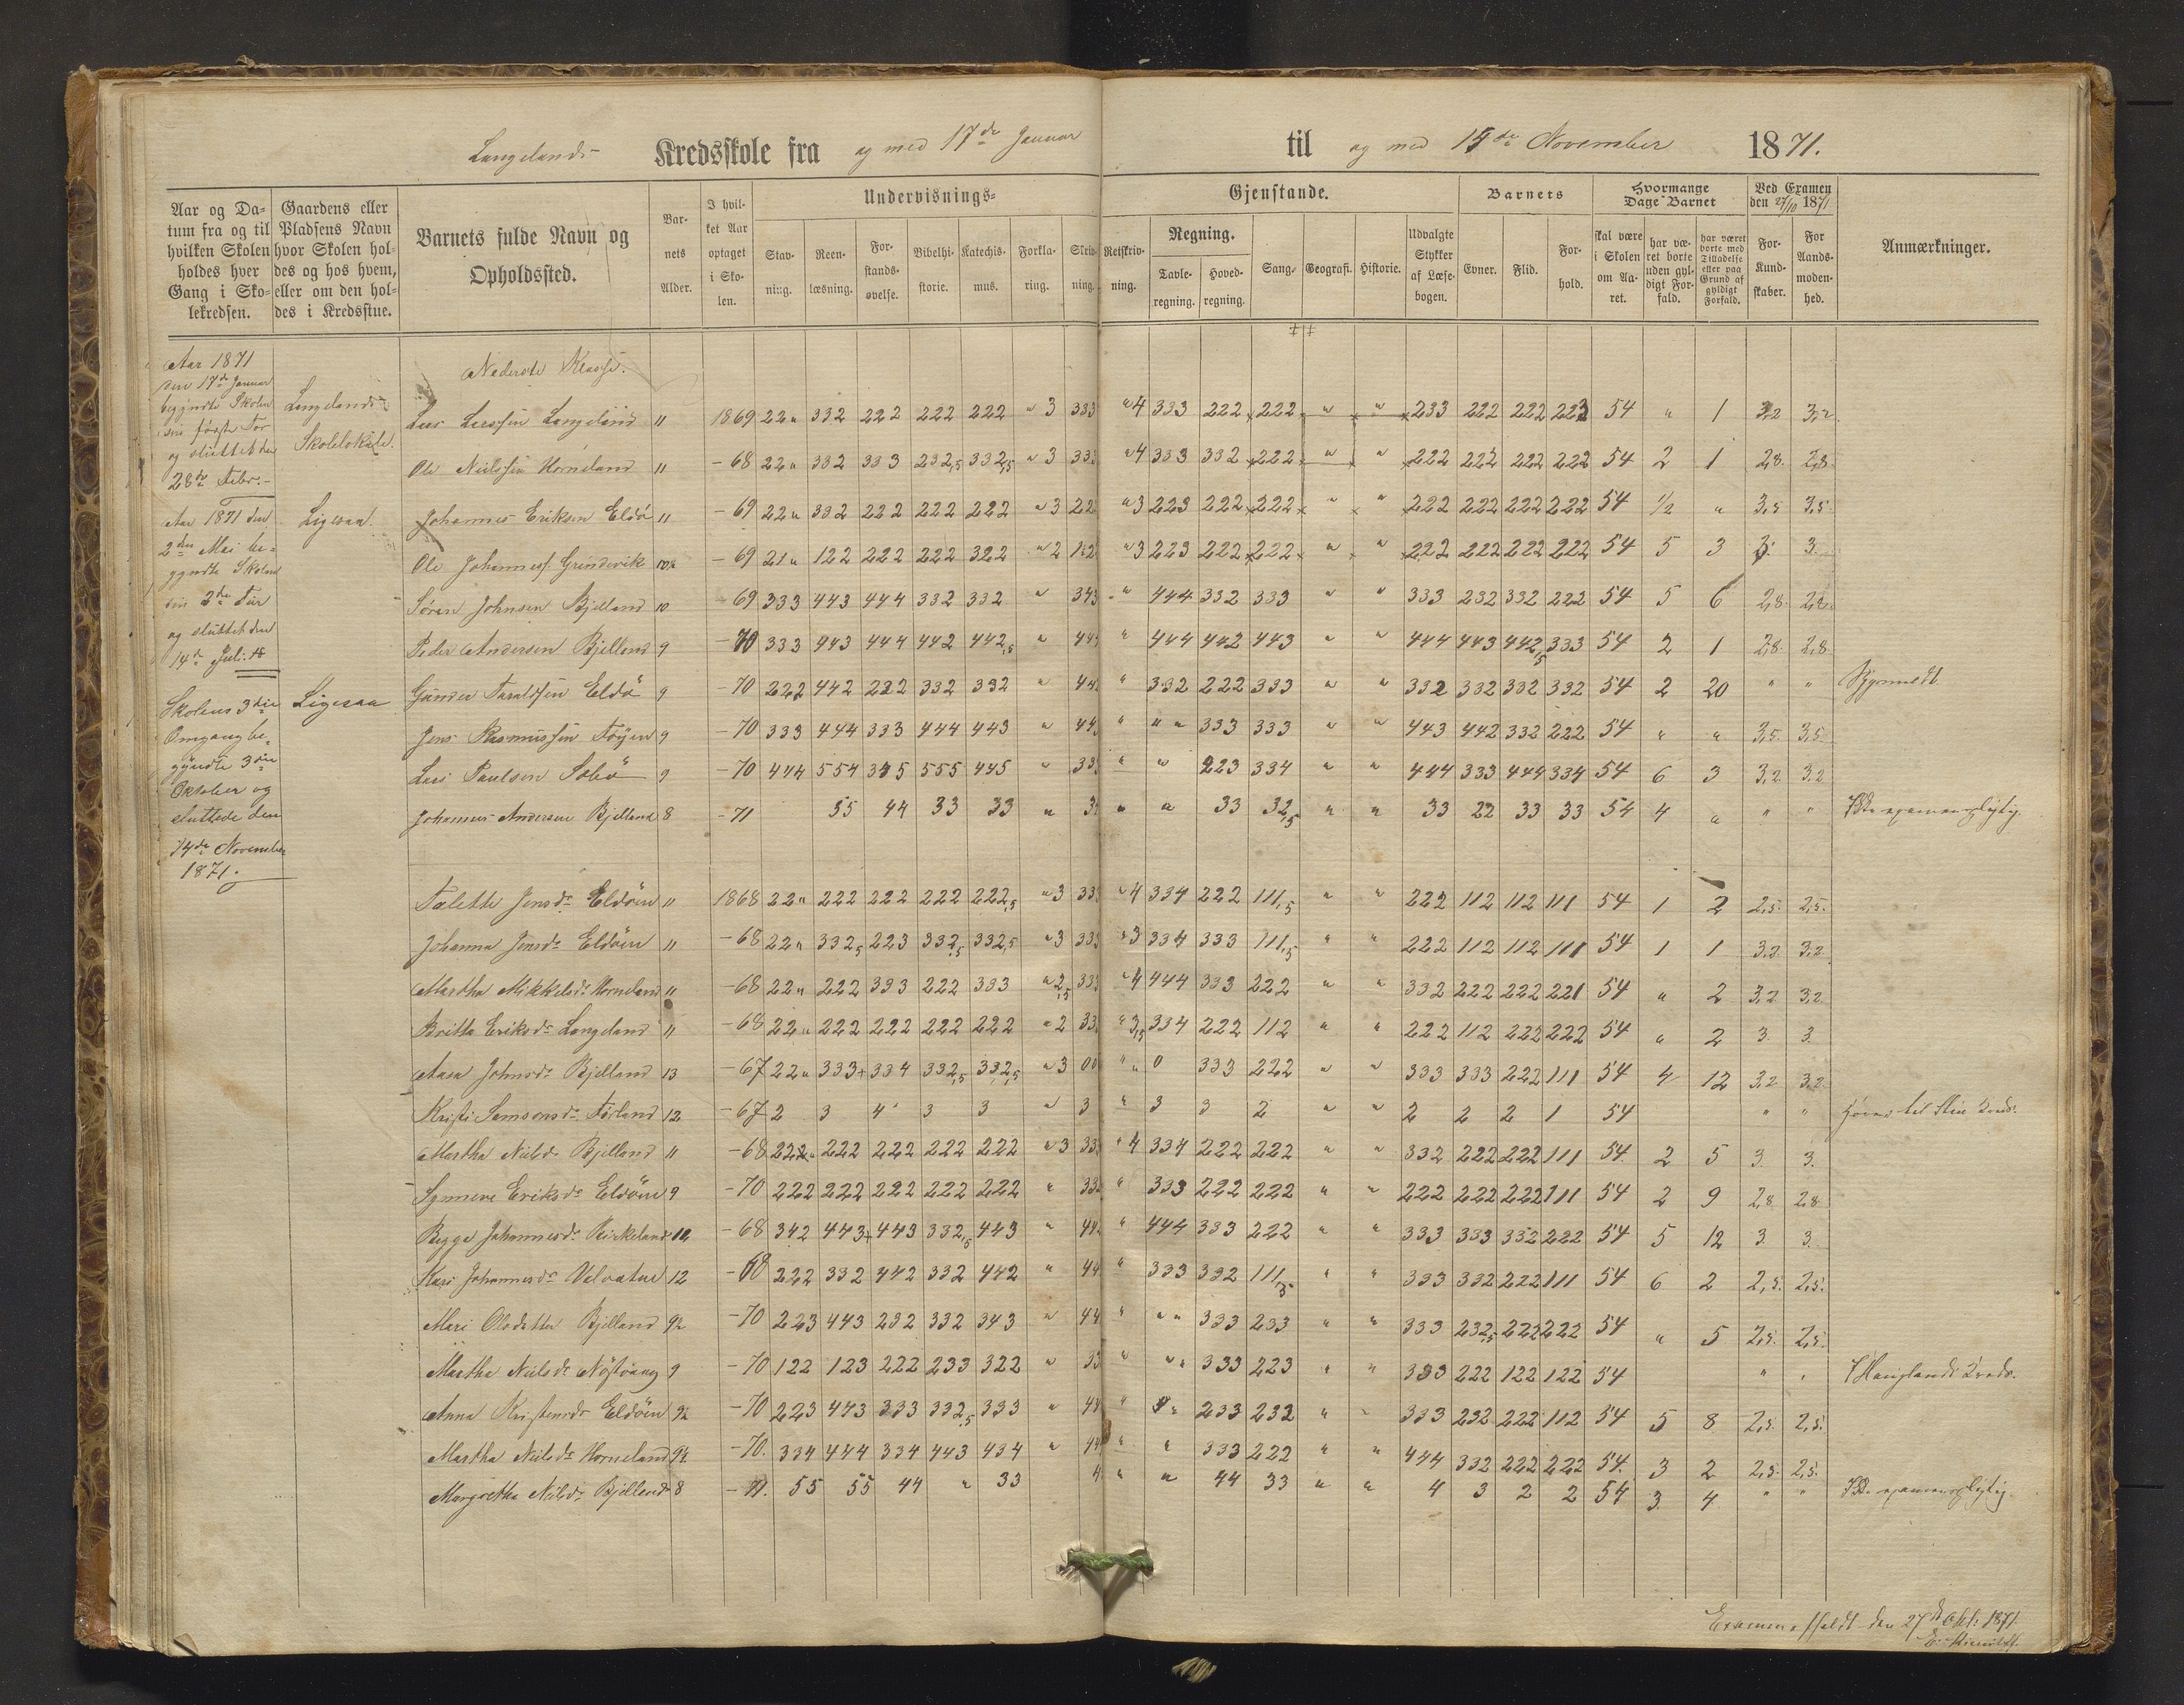 Langelands Kredsskole fra og med 17de Januar til og med 15de November 1871.
Aar og Datum fra og til hvilken Skolen holdes hver Gang i Skolekredsen.
Gaardens eller Pladsens Navn hvor Skolen holdes og hos hvem, eller om den holdes i Kredsstue.
Barnets fulde Navn og Opholdssted.
Barnets Alder.
I hvilket Aar optaget i Skolen.
Undervisnings-Gjenstande.
Stavning. Reenlæsning. Forstandsøvelse. Bibelhistorie. Katechismus. Forklaring. Skrivning. Retskrivning.
Regning. Tavleregning. Hovedregning.
Sang. Geografi. Historie. Udvalgte Stykker af Læsebogen.
Barnets Evner. Flid. Forhold.
Hvormange Dage Barnet
skal være i Skolen om Aaret.
har været borte uden gyldigt Forfald.
har været borte med Tilladelse eller paa Grund af gyldigt Forfald.
Ved Examen den 27/10 1871
For Kundskaber. For Aandsmodenhed.
Anmærkninger.
Aar 1871
den 17de Januar
begyndte Skolen
sin første Tør
og sluttet den
28de Febr.
Langelands
Skolelokale.
Aar 1871 den
2den Mai be-
gyndte Skolen
sin 2den Tür
og sluttet den
14de Juli
Ligesaa
Skolens 3die
Omgang be-
gyndte 3die
Oktober og
sluttede den
14de November
1871.
Ligesaa
Nederste Klasse.
Lars Larssen Langeland 11 1869 22" 332 222 222 222 " 3 333 " 4 333 222 222 " " 233 222 222 223 54 " 1 3,2 3,2
Ole Nielssen Horneland 11 -68 22" 332 333 232,5 332,5 " 3 333 " 4 333 332 222 " " 222 222 222 222 54 2 1 2,8 2,8
Johannes Eriksen Eldø 11 -69 22" 332 222 222 222 " 3 22 " 3 223 222 222 " " 222 222 222 222 54 1/2 " 3,5 3,5
Ole Johanness. Grindevik 10½ -69 21" 122 222 222 322 " 2 122 " 3 223 222 222 " " 222 222 222 222 54 5 3 3. 3.
Søren Johnsen Bjelland 10 -69 333 443 444 332 332 " 343 " 444 332 333 " " 333 232 332 222 54 5 6 2,8 2,8
Peder Andersen Bjelland 9 -70 333 443 444 442 442,5 " 44 " 444 442 443 " " 444 443 442,5 333 54 2 1 2,8 2,8
Gunder Taraldsen Eldö 9 -70 222 442 222 332 332 " 44 " 332 222 333 " " 332 332 332 332 54 2 20 " "
Jens Rasmussen Töjen 9 -70 333 444 333 444 443 " 44 " " " 333 333 " " 443 442 332 222 54 " " 3,5 3,5
Lars Paulsen Sæbö 9 -70 444 554 335 555 445 " 33 " " 223 334 " " 444 333 444 334 54 6 3 3,2 3,2
Johannes Andersen Bjelland 8 -71 55 44 33 33 " 3 " " 33 32,5 " " 33 22 33 33 54 4 " " " Ikke examenspligtig.
Talette Jensdr Eldöen 11 1868 22" 222 222 222 222,5 " 3 33 " 4 334 222 111,5 " " 222 112 112 111 54 1 2 2,5 2,5
Johanna Jensdr Eldöen 11 -68 22" 332,5 223 332,5 332,5 " 3 333 " 3 334 333 111,5 " " 222 112 112 111 54 1 1 3,2 3,2
Martha Mikkelsdr Horneland 11 -68 22" 222 333 222 333 " 2,5 33 " 4 444 333 222 " " 332 222 222 221 54 " 2 3,2 3,2
Britta Eriksdr Langeland 11 -68 22" 222 222 222 222 " 2 33 " 3,5 334 222 112 " " 222 112 222 222 54 " 2 3. 3.
Aasa Johnsdr Bjelland 13 -67 22" 333+ 334 332,5 332,5 " 3 00 " 0 333 222 " " 333 333 222 111 54 4 12 3,2 3,2
Kristi SamsonsdrFørland 12 -67 2 3 4 3 3 " 3 " 3 3 2 " " 2 2 2 1 54 " "
Martha Nielsdr Bjelland 11 -68 222" 222 222 222 222 " 3 33 " 4 334 222 222 " " 332 222 222 111 54 2 5 3. 3.
Synneve Eriksdr Eldöen 9 -70 222 222 222 222 222 " 33 " 333 222 222 " " 222 222 222 111 54 2 9 2,8 2,8
Bygge Johannesdr Birkeland 12 -68 342 443+ 443 332,5 443 " 44 " 444 333 222 " " 333 333 332 222 54 5 12 3. 3.
Kari Johannesdr Valvatne 12 -68 222 332 442 332 442 " 44 " 333 332 111,5 " " 333 332 222 111 54 6 2 2,5 2,5
Mari Olsdatter Bjelland 9½ -70 223 443 232 332 343 " 44 " " " 333 233 " " 333 232,5 222 222 54 " 5 2,5 2,5
Martha Nielsdr Nöstvaag 9 -70 122 123 222 233 322 " 33 " " " 333 223 " " 333 222 122 122 54 " " I Hauglands Kreds.
Anna Kristensdr Eldöen 9½ -70 223 443 333 332,5 333 " 44 " " 233 232 " " 333 232 222 112 54 5 8 2,5 2,5
Martha Nielsdr Horneland 9½ -70 334 444 334 443 434 " 44 " " 333 222 " " 444 332 222 222 54 3 2 2,5 2,5
Margrethe Nilsdr Bjelland 8 -71 55 55 44 " 33 4 " " 44 33 " " 4 3 2 2 54 3 4 " " Ikke examenspligtig.
Examen afholdt den 27de Okt. 1871